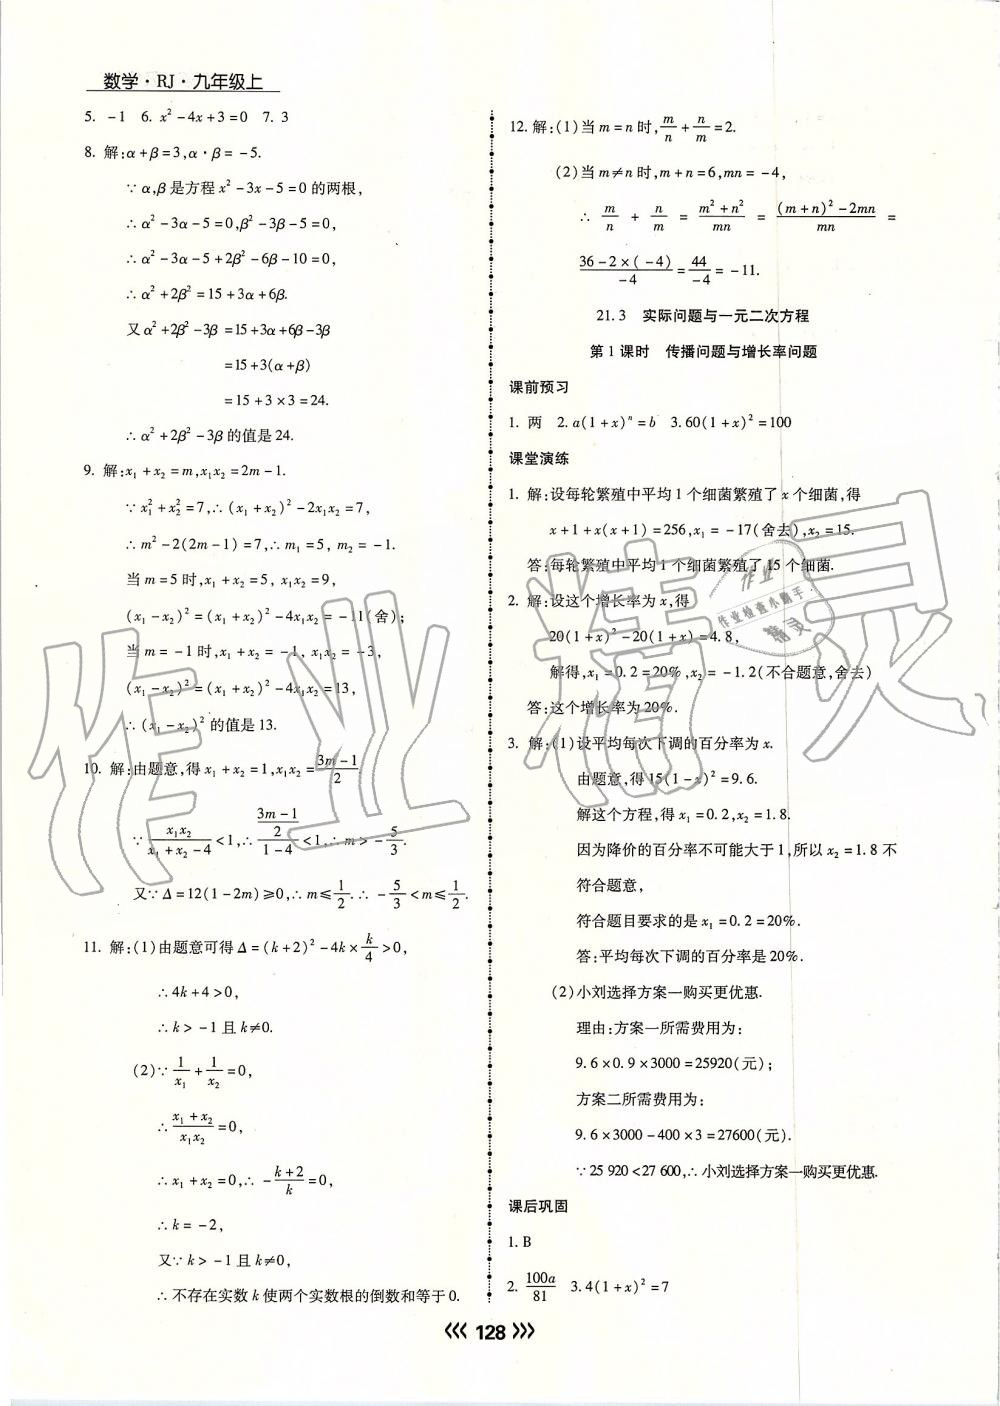 数学·RJ·九年级上
5. -1 6. x²-4x+3=0 7. 3
8. 解:α+β=3,α·β=-5.
∵α,β是方程x²-3x-5=0的两根,
∴α²-3α-5=0,β²-3β-5=0,
∴α²-3α-5+2β²-6β-10=0,
∴α²+2β²=15+3α+6β.
又α²+2β²-3β=15+3α+6β-3β
=15+3(α+β)
=15+3×3=24.
∴α²+2β²-3β的值是24.
9. 解:x₁+x₂=m,x₁x₂=2m-1.
∵x₁²+x₂²=7,∴(x₁+x₂)²-2x₁x₂=7,
∴m²-2(2m-1)=7,∴m₁=5, m₂=-1.
当m=5时,x₁+x₂=5, x₁x₂=9,
(x₁-x₂)²=(x₁+x₂)²-4x₁x₂=-11(舍);
当m=-1时,x₁+x₂=-1, x₁x₂=-3,
(x₁-x₂)²=(x₁+x₂)²-4x₁x₂=13,
∴(x₁-x₂)²的值是13.
10. 解:由题意,得x₁+x₂=1,x₁x₂=(3m-1)/2.
∵x₁x₂/(x₁+x₂-4)<1,∴((3m-1)/2)/(1-4)<1,∴m>-5/3.
又∵Δ=12(1-2m)≥0,∴m≤1/2.∴-5/3<m≤1/2.
11. 解:(1)由题意可得Δ=(k+2)²-4k×k/4>0,
∴4k+4>0,
∴k>-1且k≠0.
(2)∵1/x₁+1/x₂=0,
∴(x₁+x₂)/x₁x₂=0,
∴x₁+x₂=0,∴-(k+2)/k=0,
∴k=-2,
又∵k>-1且k≠0,
∴不存在实数k使两个实数根的倒数和等于0.
12. 解:(1)当m=n时,m/n+n/m=2.
(2)当m≠n时,m+n=6,mn=-4,
∴m/n+n/m=(m²+n²)/mn=((m+n)²-2mn)/mn=
(36-2×(-4))/-4=44/-4=-11.
21.3 实际问题与一元二次方程
第1课时 传播问题与增长率问题
课前预习
1. 两 2. a(1+x)ⁿ=b 3. 60(1+x)²=100
课堂演练
1. 解:设每轮繁殖中平均1个细菌繁殖了x个细菌,得
x+1+x(x+1)=256,x₁=-17(舍去),x₂=15.
答:每轮繁殖中平均1个细菌繁殖了15个细菌.
2. 解:设这个增长率为x,得
20(1+x)²-20(1+x)=4.8,
解得,x₁=0.2=20%,x₂=-1.2(不合题意,舍去)
答:这个增长率为20%.
3. 解:(1)设平均每次下调的百分率为x.
由题意,得15(1-x)²=9.6.
解这个方程,得x₁=0.2,x₂=1.8.
因为降价的百分率不可能大于1,所以x₂=1.8不
符合题意,
符合题目要求的是x₁=0.2=20%.
答:平均每次下调的百分率是20%.
(2)小刘选择方案一购买更优惠.
理由:方案一所需费用为:
9.6×0.9×3000=25920(元);
方案二所需费用为:
9.6×3000-400×3=27600(元).
∵25 920<27 600,∴小刘选择方案一购买更优惠.
课后巩固
1. B
2. 100a/81 3. 4(1+x)²=7
《《 128 》》
作业精灵
作业
作业检查小助手
精灵